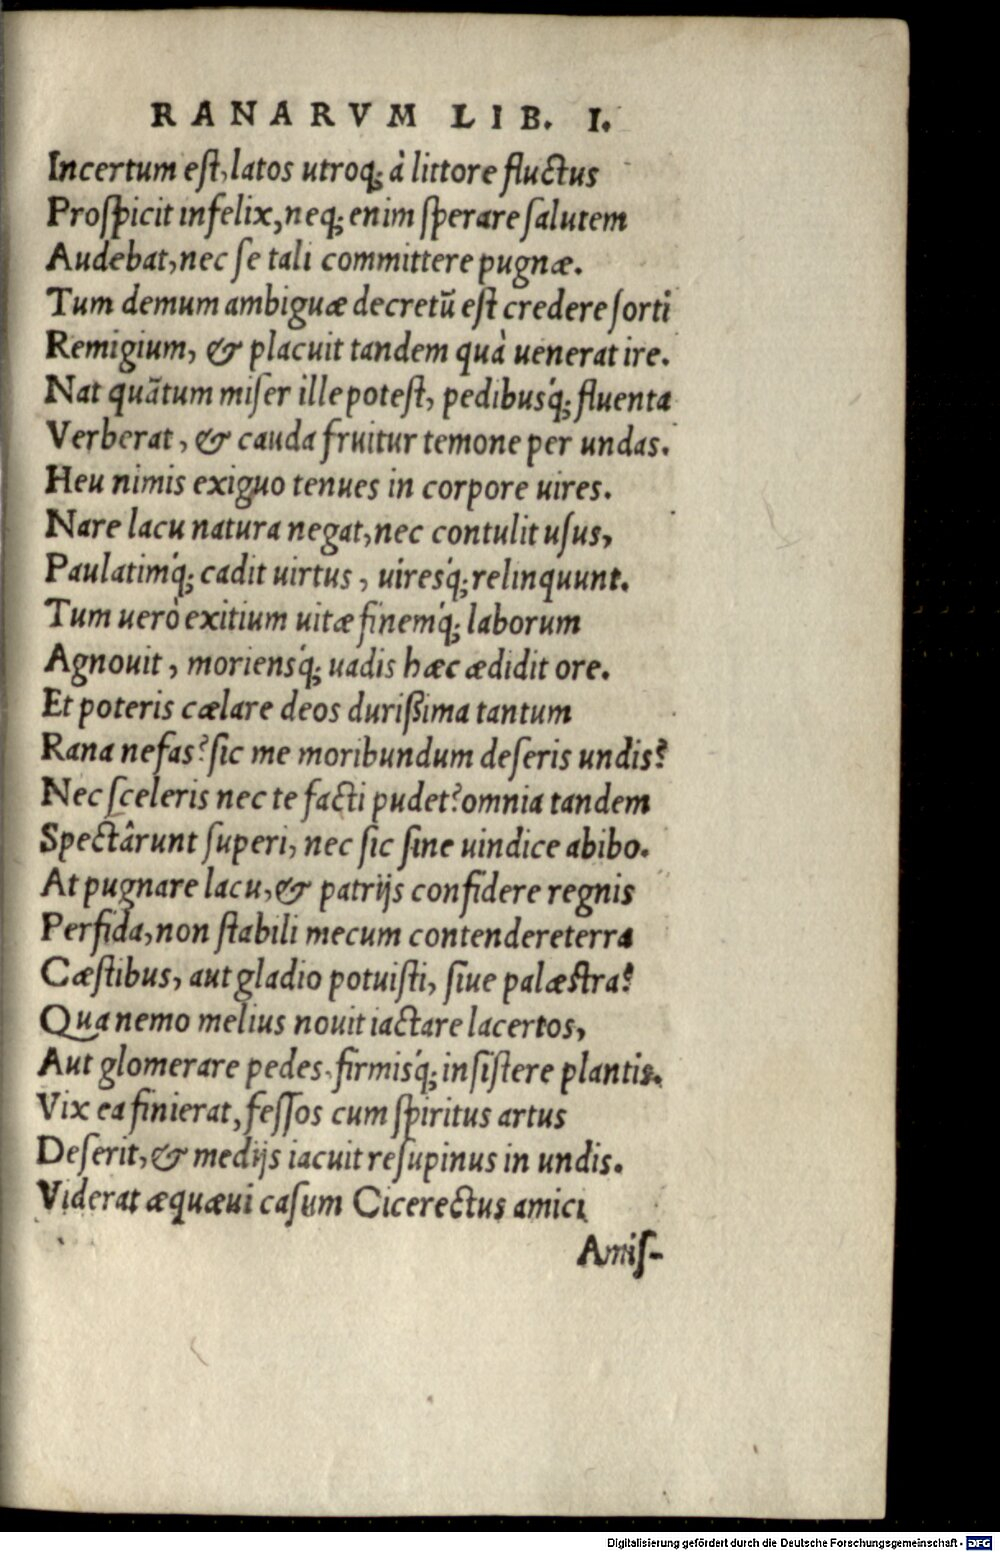 RANARVM LIB. I.
Incertum est, latos utroq; à littore fluctus
Prospicit infelix, neq; enim sperare salutem
Audebat, nec se tali committere pugnæ.
Tum demum ambiguæ decretū est credere sorti
Remigium, & placuit tandem quà uenerat ire.
Nat quātum miser ille potest, pedibusq́; fluenta
Verberat, & cauda fruitur temone per undas.
Heu nimis exiguo tenues in corpore uires.
Nare lacu natura negat, nec contulit usus,
Paulatimq́; cadit uirtus, uiresq́; relinquunt.
Tum uerò exitium uitæ finemq́; laborum
Agnouit, moriensq́; uadis hæc ædidit ore.
Et poteris cælare deos durißima tantum
Rana nefas? sic me moribundum deseris undis?
Nec sceleris nec te facti pudet? omnia tandem
Spectârunt superi, nec sic sine uindice abibo.
At pugnare lacu, & patrijs confidere regnis
Perfida, non stabili mecum contendere terra
Cæstibus, aut gladio potuisti, siue palæstra?
Qua nemo melius nouit iactare lacertos,
Aut glomerare pedes, firmisq́; insistere plantis.
Vix ea finierat, fessos cum spiritus artus
Deserit, & medijs iacuit resupinus in undis.
Viderat æquæui casum Cicerectus amici
Amis-
Digitalisierung gefördert durch die Deutsche Forschungsgemeinschaft - DFG